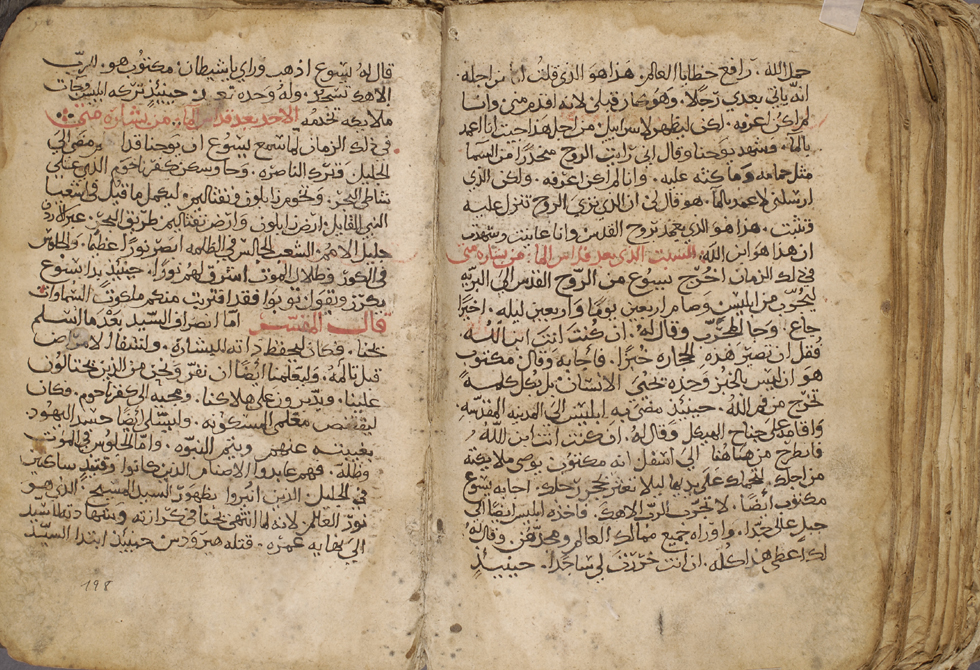 حمل الله. رافع خطايا العالم. هذا هو الذي قلت انا من اجله
انه ياتي بعدي رجلا. وهو صار قبلي لانه اقدم مني وانا
لم اكن اعرفه. لكن ليظهر لاسراييل من اجل هذا جيت انا اعمد
بالما. وشهد يوحنا وقال اني رايت الروح منحدرا من السما
مثل حمامه وماكثه عليه. وانا لم اكن اعرفه. ولكن الذي
ارسلني لاعمد بالما. هو قال لي ان الذي ترى الروح تنزل عليه
وتثبت. هذا هو الذي يعمد بروح القدس وانا عاينت وشهدت
ان هذا هو ابن الله. السبت الذي بعد قداس الما. من بشارة متى
في ذلك الزمان اخرج يسوع من الروح القدس الى البريه
ليجرب من ابليس وصام اربعين يوما واربعين ليله. اخيرا
جاع. وجا المجرب وقال له. ان كنت انت ابن الله
فقل ان تصير هذه الحجاره خبزا. فاجابه وقال مكتوب
هو ان ليس بالخبز وحده يحيى الانسان بل بكل كلمه
تخرج من فم الله. حينيذ مضى به ابليس الى المدينه المقدسه.
واقامه على جناح الهيكل وقال له. ان كنت انت ابن الله
فانطرح من هاهنا الى اسفل انه مكتوب يوصي ملايكته
من اجلك. لتحملك على يديها ليلا تعثر بحجر رجلك. اجابه يسوع
مكتوب ايضا. لا تجرب الرب الاهك. فاخذه ابليس ايضا الى
جبل عالي جدا. واوراه جميع ممالك العالم ومجدهن. وقال له
لك اعطي هذا كله. ان انت خررت لي ساجدا. حينيذ
قال له يسوع اذهب وراي يا شيطان. مكتوب هو. للرب
الاهك تسجد. وله وحده تعبد. حينيذ تركه ابليس وجات
ملايكه تخدمه الاحد بعد قداس الما. من بشارة متى
في ذلك الزمان لما سمع يسوع ان يوحنا قد مضى الى
الجليل. وترك الناصره. وجا وسكن كفرناحوم التي على
شاطي البحر. وتخوم زابلون ونفتاليم. ليكمل ما قيل في اشعيا
النبي القايل. ارض زابلون وارض نفتاليم طريق البحر. عبر الاردن
جليل الامم. الشعب الجالس في الظلمه ابصر نورا عظيما. والجلوس
في الكور وظلال الموت اشرق لهم نورا. حينيذ بدا يسوع
يكرز ويقول توبوا فقد اقتربت منكم ملكوت السماوات
قال المفسر اما انصراف السيد بعد ما اسلم
يحنا. فكان ليحفظ ذاته للبشاره. ولشفا الامراض
قبل تالمه. وليعلمنا ايضا ان نفر ونحن من الذين يحتالون
علينا. ويدبرون على هلاكنا. ومجيه الى كفرناحوم. فكان
ليقتنص معلمي المسكونه. وليسلي ايضا حسد اليهود.
بغيبته عنهم ويتم النبوه. واما الجلوس في الموت
وظله. فهم عابدوا الاصنام الذين كانوا وقتيذ ساكنين
في الجليل الذين انيروا بظهور السيد المسيح. الذي هو
نور العالم. لانه لما انتهى يحنا في كرازته
الى نهايه عمره. قتله هيرودس حينيذ ابتدا السيد
198